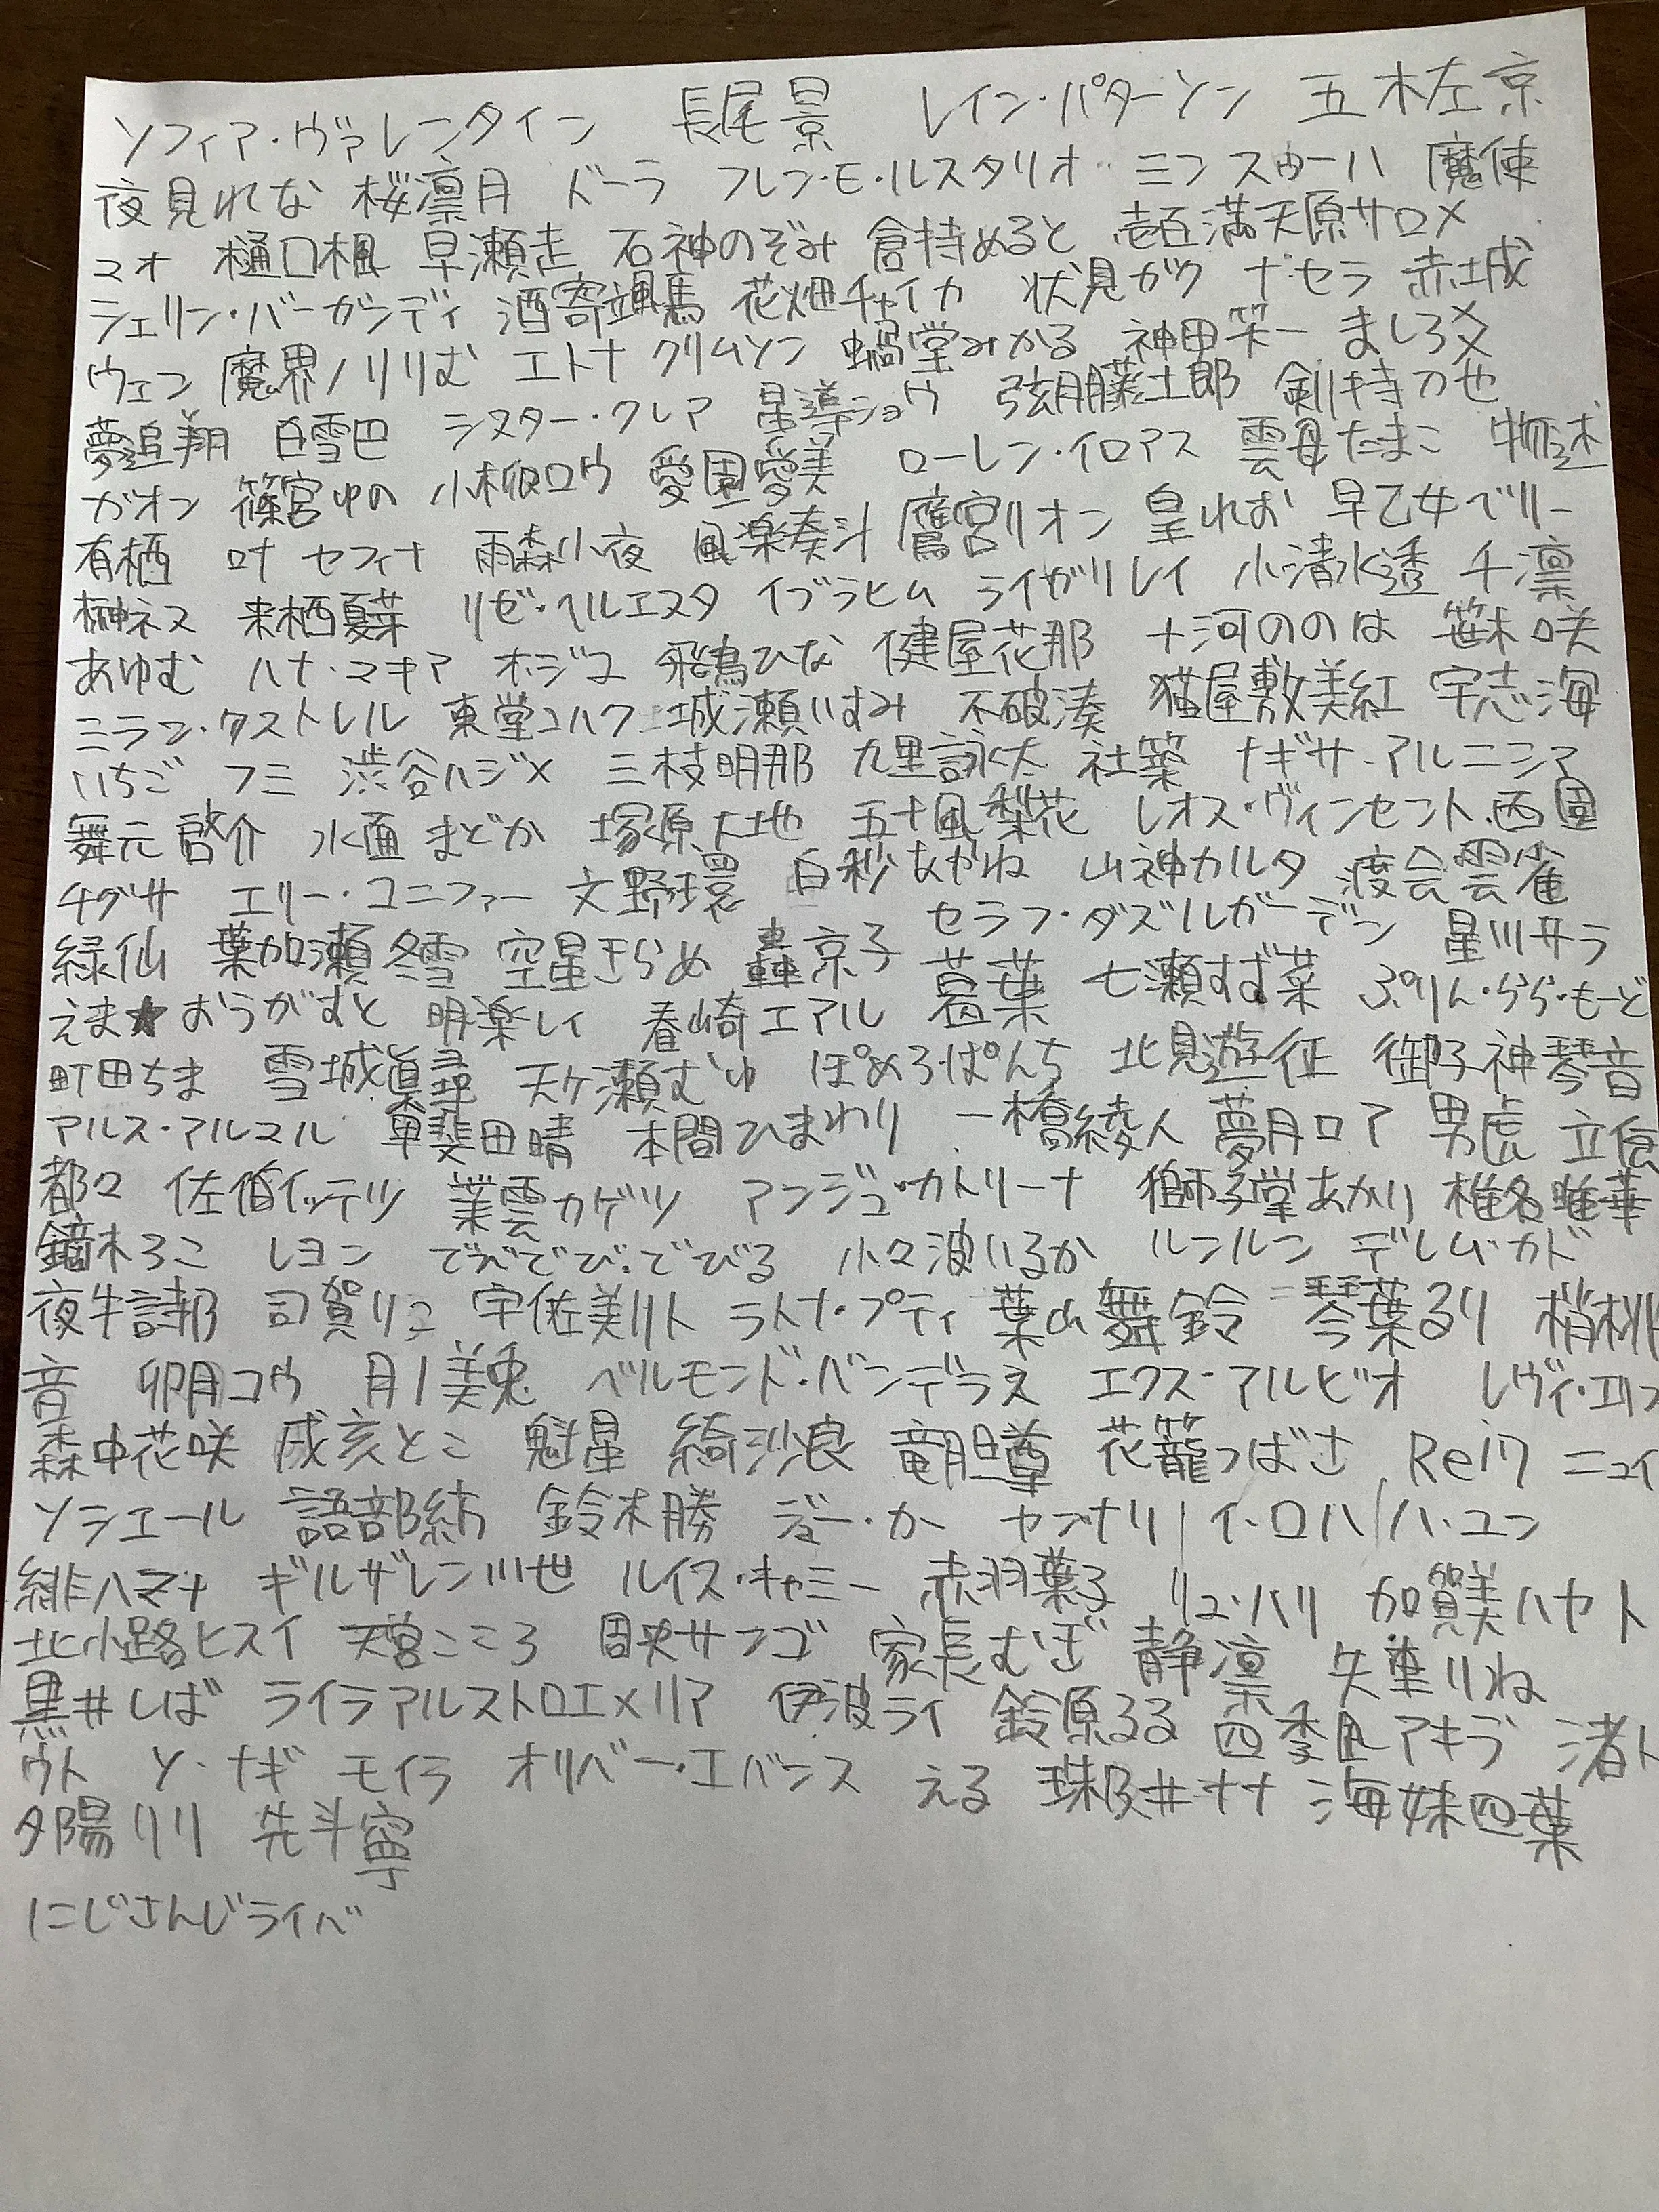 ソフィア・ヴァレンタイン 長尾景 レイン・パターソン 五木左京
夜見れな 桜凛月 ドーラ フレン・E・ルスタリオ ミン スゥーハ 魔使
マオ 樋口楓 早瀬走 石神のぞみ 倉持めると 壱百満天原サロメ
シェリン・バーガンディ 酒寄颯馬 花畑チャイカ 伏見ガク ナ・セラ 赤城
ウェン 魔界ノりりむ エトナ クリムゾン 蝸堂みかる 神田笑一 ましろ爻
夢追翔 白雪巴 シスター・クレア 星導ショウ 弦月藤士郎 剣持刀也
ガオン 篠宮ゆの 小柳ロウ 愛園愛美 ローレン・イロアス 雲母たまこ 物述
有栖 叶 セフィナ 雨森小夜 風楽奏斗 鷹宮リオン 皇れお 早乙女ベリー
榊ネス 来栖夏芽 リゼ・ヘルエスタ イブラヒム ライ ガリレイ 小清水透 千凛
あゆむ ハナ・マキア オ・ジユ 飛鳥ひな 健屋花那 十河ののは 笹木咲
ミラン・ケストレル 東堂コハク 城瀬いすみ 不破湊 猫屋敷美紅 宇志海
いちご フミ 渋谷ハジメ 三枝明那 九里詠太 社築 ナギサ・アルニシア
舞元啓介 水面まどか 塚原大地 五十嵐梨花 レオス・ヴィンセント 西園
チグサ エリー・コニファー 文野環 白砂あかね 山神カルタ 渡会雲雀
緑仙 葉加瀬冬雪 空星きらめ 轟京子 セラフ・ダズルガーデン 星川サラ
えま★おうがすと 明楽レイ 春崎エアル 葛葉 七瀬すず菜 ぷりん・らら・もーど
町田ちま 雪城眞尋 天ケ瀬むゆ ぽめろぱんち 北見遊征 御子神琴音
アルス・アルマル 甲斐田晴 本間ひまわり 一橋綾人 夢月ロア 男虎 立伝
都々 佐伯イッテツ 叢雲カゲツ アンジュ・カトリーナ 獅子堂あかり 椎名唯華
鏑木ろこ レヨン でびでび・でびる 小々波いるか ルンルン デレム・カド
夜牛詩乃 司賀りこ 宇佐美リト ラトナ・プティ 葉山舞鈴 琴葉るり 梢桃
音 卯月コウ 月ノ美兎 ベルモンド・バンデラス エクス・アルビオ レヴィ・エリファ
森中花咲 戌亥とこ 魁星 綺沙良 竜胆尊 花籠つばさ Rei7 ニュイ
ソシエール 語部紡 鈴木勝 ジユー・カー ヤンナリ イ・ロハ ハ・ユン
緋八マナ ギルザレンIII世 ルイス・キャミー 赤羽葉子 リュ・ハリ 加賀美ハヤト
北小路ヒスイ 天宮こころ 周央サンゴ 家長むぎ 静凛 矢車りね
黒井しば ライラ アルストロエメリア 伊波ライ 鈴原るる 四季凪アキラ 渚ト
ウト ソ・ナギ モイラ オリバー・エバンス える 珠乃井ナナ 海妹四葉
夕陽リリ 先斗寧
にじさんじライバ